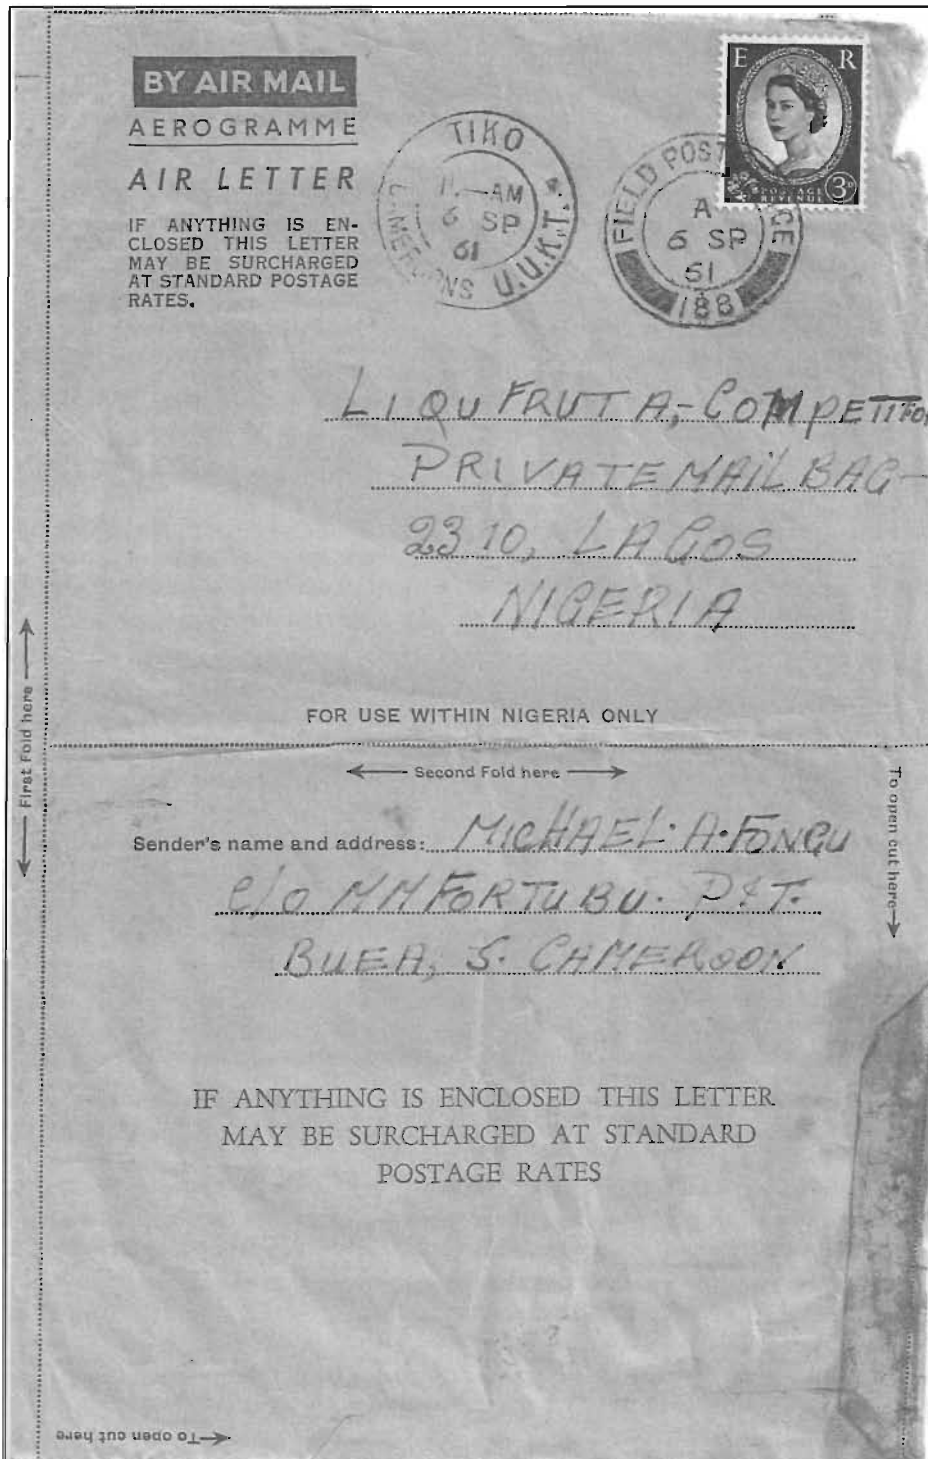 BY AIR MAIL
AEROGRAMME
AIR LETTER
IF ANYTHING IS EN-
CLOSED THIS LETTER
MAY BE SURCHARGED
AT STANDARD POSTAGE
RATES.
TIKO
AM
6 SP
61
U.U.K.T.
FIELD POST
A
6 SP
61
188
E R
POSTAGE
REVENUE
3D
LIQUFRUTA,-COMPETITION
PRIVATE MAIL BAG-
2310, LAGOS
NIGERIA
FOR USE WITHIN NIGERIA ONLY
First Fold here
Second Fold here
To open cut here
Sender's name and address: MICHAEL. A. FONGU
C/O M M FORTUBU. P&T.
BUEA, S. CAMEROON
IF ANYTHING IS ENCLOSED THIS LETTER
MAY BE SURCHARGED AT STANDARD
POSTAGE RATES
To open cut here